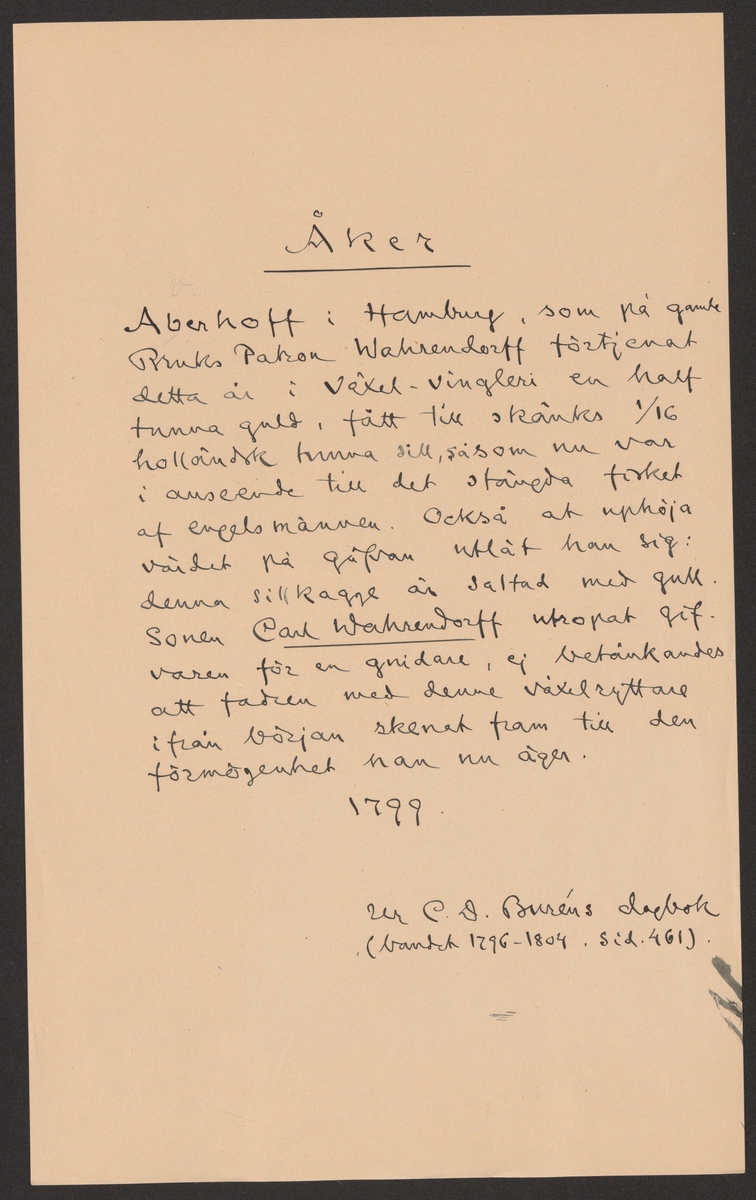 Åker
Aberhoff i Hamburg, som på gamle
Bruks Patron Wahrendorff förtjenat
detta år i växel-vingleri en half
tunna guld, fått till skänks 1/16
holländsk tunna sill, såsom nu var
i anseende till det stängda fisket
af engelsmännen. Också at uphöja
värdet på gåfvan utlåt han sig:
denna sillkagge är saltad med gull.
Sonen Carl Wahrendorff utropat gif-
varen för en gnidare, ej betänkandes
att fadren med denne växelryttare
ifrån början skenat fram till den
förmögenhet han nu äger.
1799.
Ur C. D. Buréns dagbok
(bandet 1796-1804. Sid. 461).